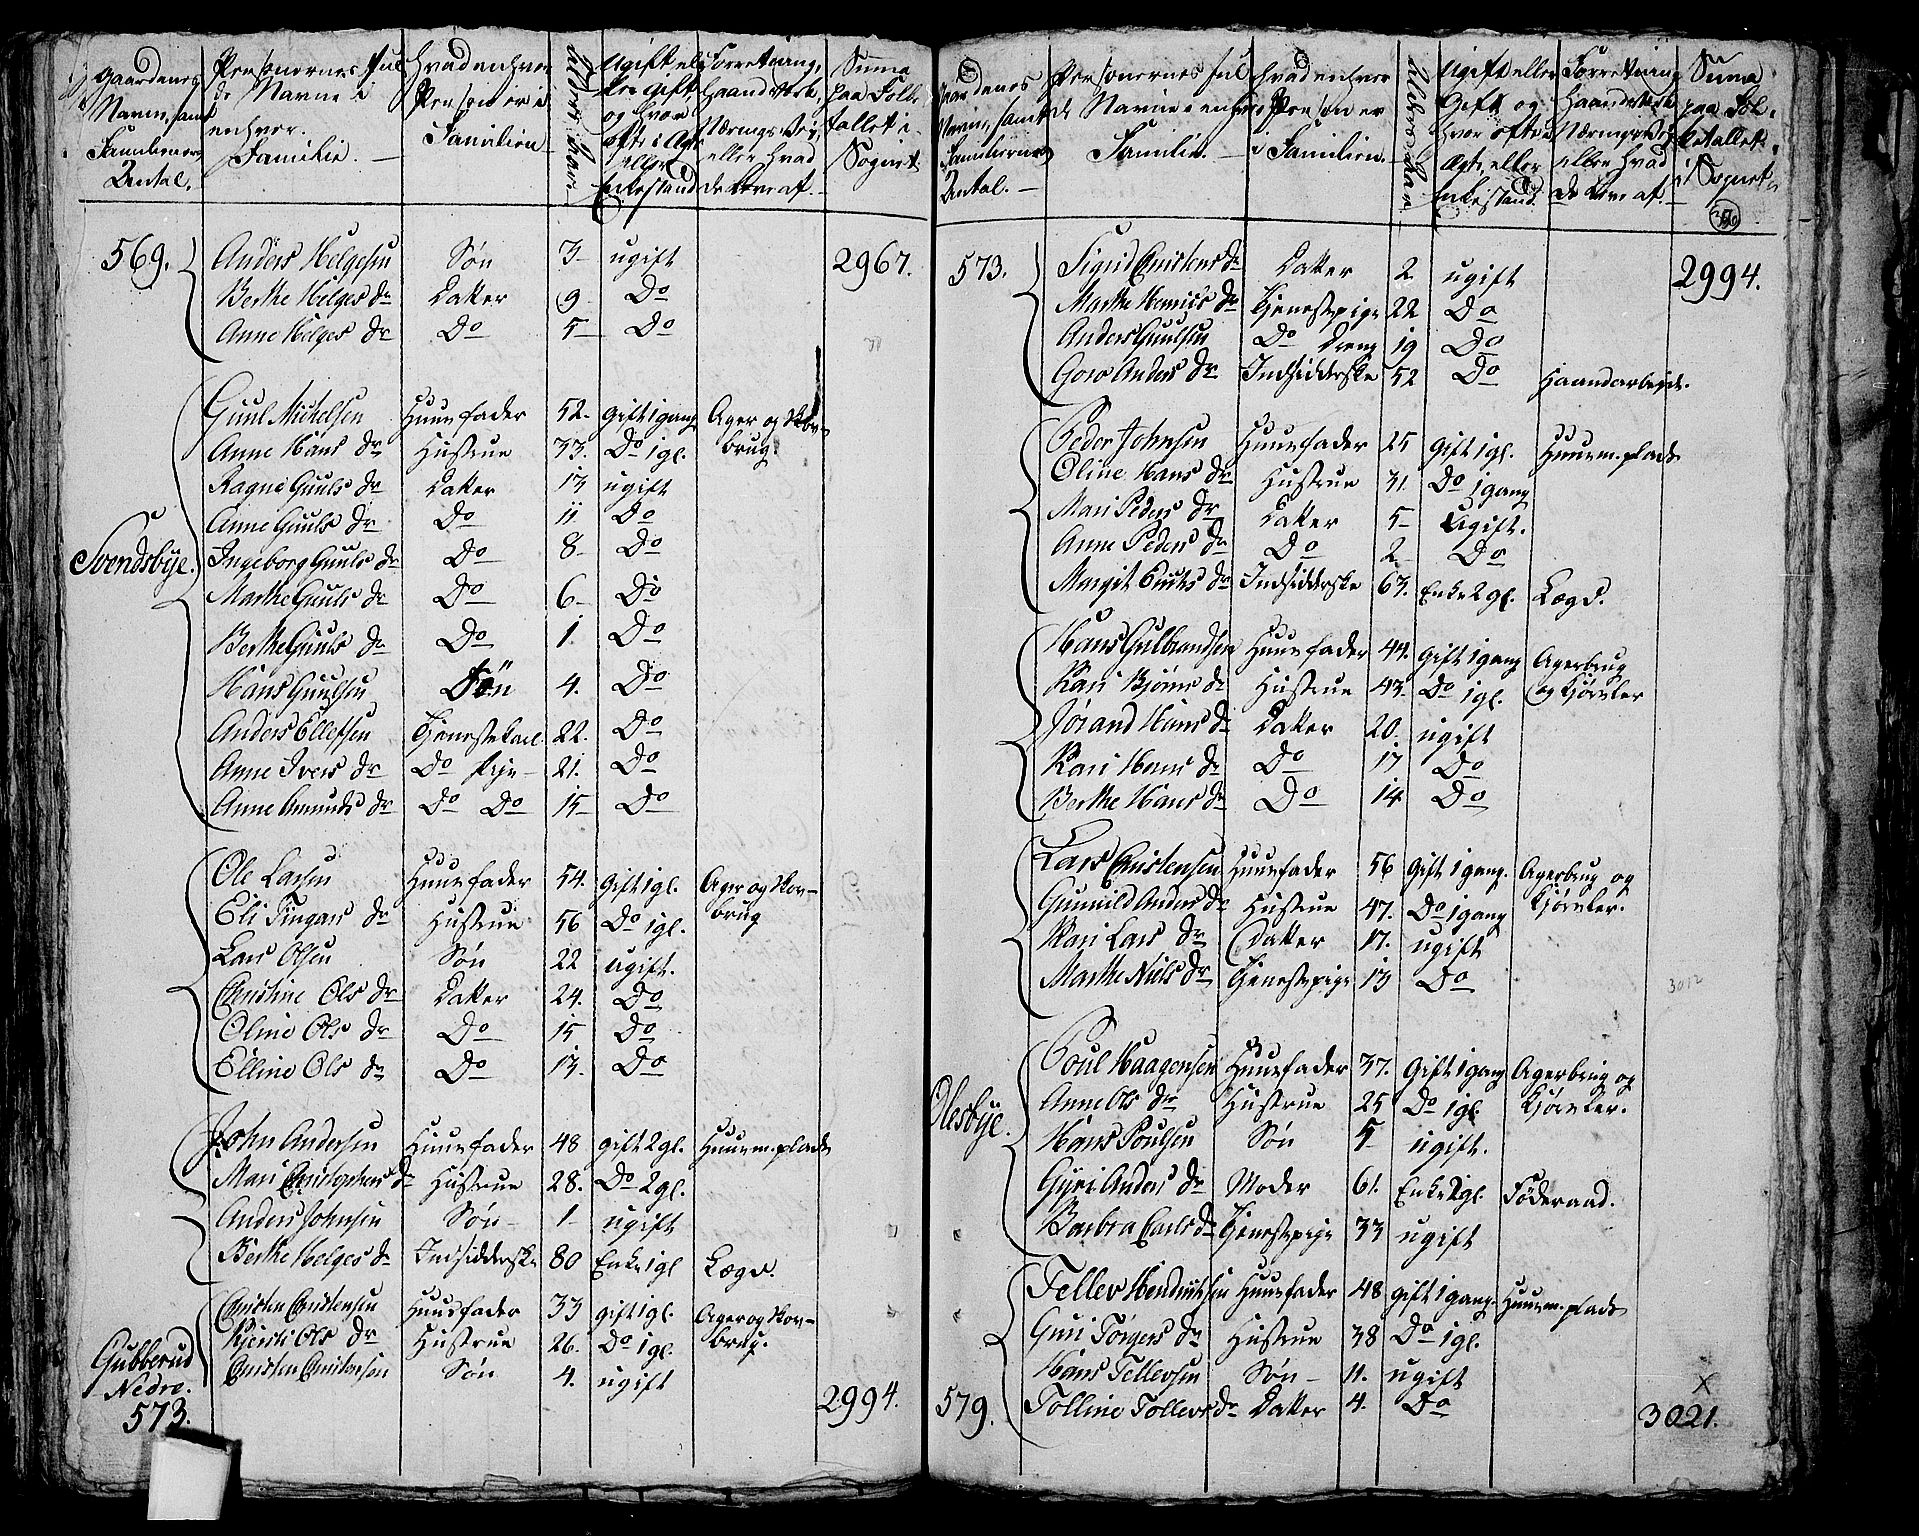 Gaardenes Navn, samt Familiernes Antal.
Personernes fulde Navne i enhver Familie.
Hvad enhver Person er i Familien
Alders Aar
Ugift eller Gift, og hvor ofte i Ægte eller Enkestand
Forretning, Haandværk, Næringsvei, eller hvad de leve af.
Suma paa Folketallet i Sognet
569. Anders Helgesen Søn 3 ugift 2967.
Berthe Helges Dr Datter 9 Do
Anne Helges Dr Do 5 Do
Guul Michelsen Huusfader 52. gift 1 gang Ager og Skov-
Anne Hans Dr Hustrue 33. Do 1 gl. brug.
Ragne Guuls Dr Datter 13 ugift
Anne Guuls Dr Do 11 Do
Svendsbye. Ingeborg Guuls Dr Do 8 Do
Marthe Guuls Dr Do 6 Do
Berthe Guuls Dr Do 1. Do
Hans Guulsen Søn 4. Do
Anders Ellefsen Tjenestekarl 22. Do
Anne Ivers Dr Do Pige 21. Do
Anne Amunds Dr Do Do 15 Do
Ole Larsen Huusfader 54. gift 1 gl. Ager og Skov-
Eli Fingars Dr Hustrue 56 Do 1 gl. brug
Lars Olsen Søn 22 ugift.
Christine Ols Dr Datter 24. Do
Oline Ols Dr Do 15 Do
Elline Ols Dr Do 13. Do
John Andersen Huusfader 48 gift 2 gl. Huusm. plads
Mari Christophers Dr Hustrue 28. Do 2 gl.
Anders Johnsen Søn 1 ugift
Berthe Helges Dr Indsidderske 80 Enke 1 gl Lægd.
Christen Christensen Huusfader 33 gift 1 gl. Ager og Skov-
Gubberud Kiersti Ols Dr Hustrue 26. Do 1 gl. brug.
Nedre. Christen Christensen Søn 4. ugift
573. 2994.
Gaardenes Navn, samt Familiernes Antal.
Personernes fulde Navne i enhver Familie.
Hvad enhver Person er i Familien.
Alders Aar
Ugift eller Gift og hvor ofte i Ægte, eller Enkestand.
Forretning Haandværk Næringsvei eller hvad de leve af.
Suma paa Folketallet i Sognet
573. Sigrid Christens Dr Datter 2 ugift 2994.
Marthe Henrics Dr Tjenestepige 22 Do
Anders Guulsen Do Dreng 19 Do
Goro Anders Dr Indsidderske 52 Do Haandarbejde.
Peder Johnsen Huusfader 25 gift 1 gl. Huusm. plads
Oline Hans Dr Hustrue 31. Do 1 gang
Mari Peders Dr Datter 5 Ugift.
Anne Peders Dr Do 2 Do
Margit Guuls Dr Indsidderske 63. Enke 2 gl. Lægd.
Hans Gulbrandsen Huusfader 44. gift 1 gang Agerbrug
Kari Bjørns Dr Hustrue 43. Do 1 gl. og Kjørsler
Jørand Hans Dr Datter 20. ugift
Kari Hans Dr Do 17 Do
Berthe Hans Dr Do 14 Do
Lars Christensen Huusfader 56 Gift 1 gang. Agerbrug og
Gunnild Anders Dr Hustrue 47. Do 1 gang Kjørsler.
Kari Lars Dr Datter 17. ugift
Marthe Niels Dr Tjenestepige 13 Do
3012
Poul Haagensen Huusfader 37. Gift 1 gang Agerbrug og
Olesbye. Anne Ols Dr Hustrue 25 Do 1 gl. Kjørsler.
Hans Poulsen Søn 5 ugift.
Gyri Anders Dr Moder 61. Enke 2 gl. Føderaad.
Barbra Carls Dr Tjenestepige 33 ugift
Tellev Hendrichsen Huusfader 48 gift 1 gang Huusm. plads
Guri Torgers Dr Hustrue 38 Do 1 gl.
Hans Tellevsen Søn 11. ugift
579. Tolline Tollevs Dr Datter 4. Do 3021.